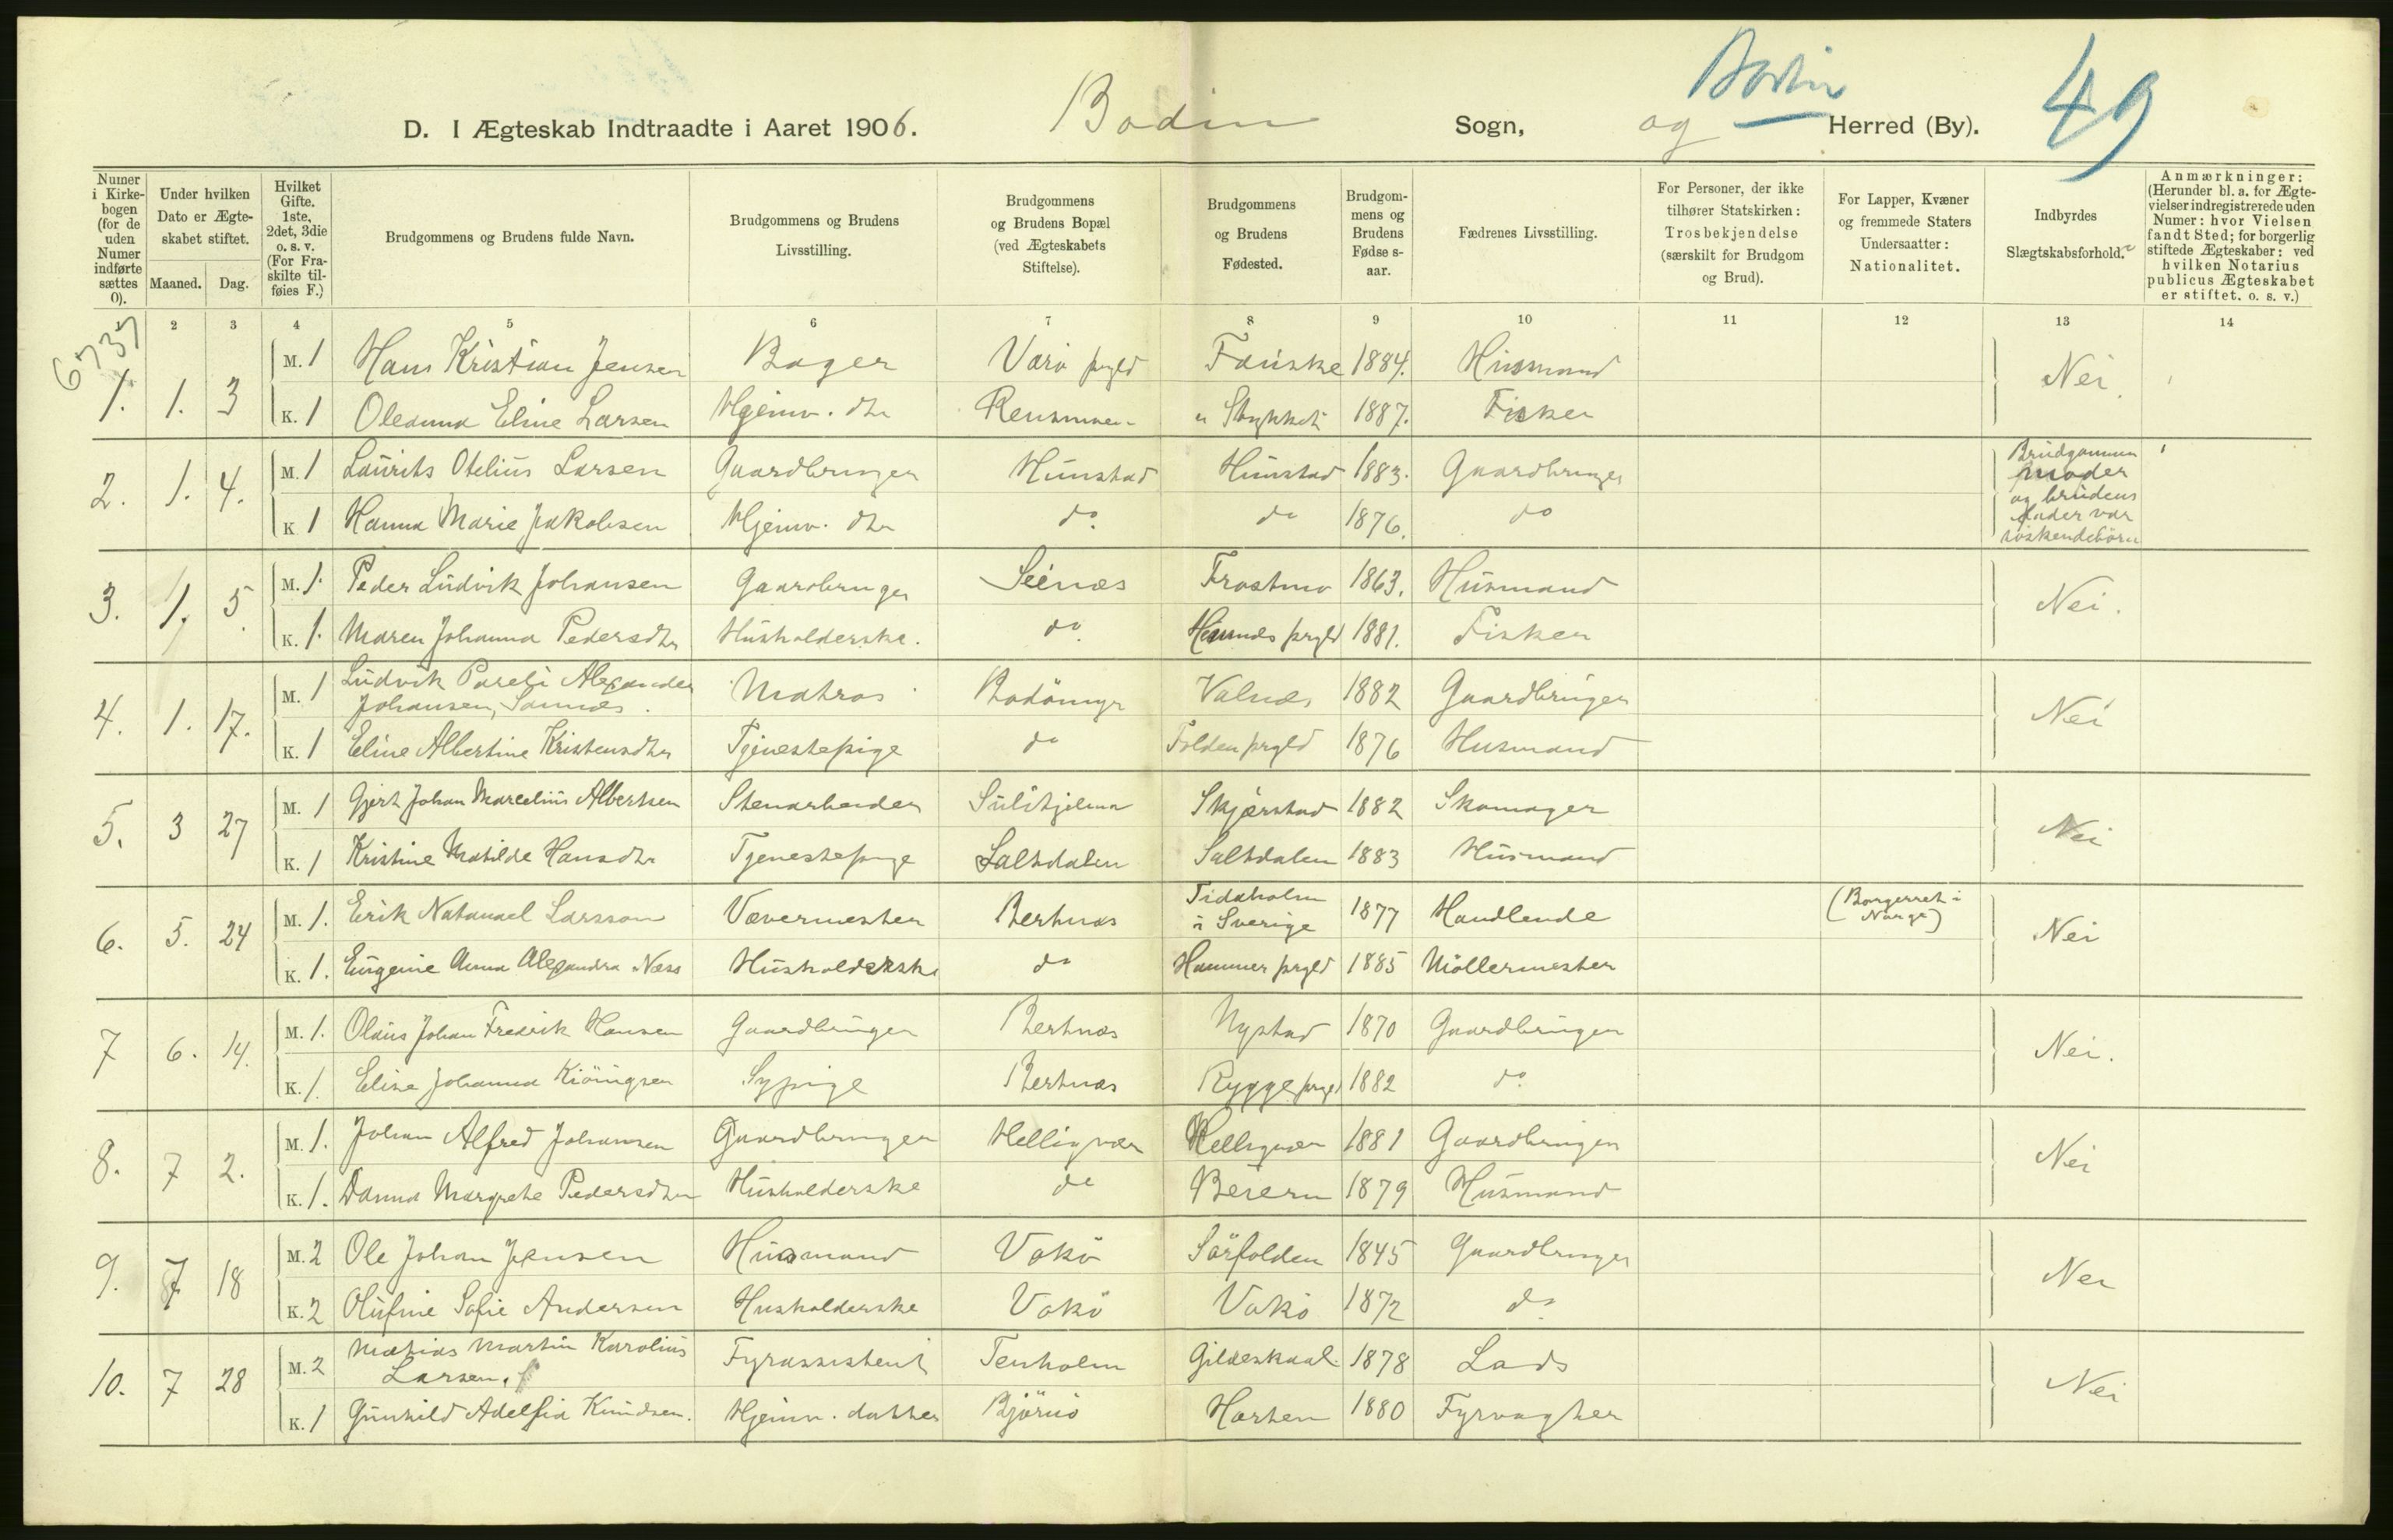 Bodin
49
D. I Ægteskab Indtraadte i Aaret 1906. Bodin Sogn, og Herred (By).
Numer i Kirkebogen (for de uden Numer indførte sættes 0).
Under hvilken Dato er Ægteskabet stiftet.
Maaned. Dag.
Hvilket Gifte. 1ste, 2det, 3die o. s. v. (For Fraskilte tilføies F.)
Brudgommens og Brudens fulde Navn.
Brudgommens og Brudens Livsstilling.
Brudgommens og Brudens Bopæl (ved Ægteskabets Stiftelse).
Brudgommens og Brudens Fødested.
Brudgommens og Brudens Fødselsaar.
Fædrenes Livsstilling.
For Personer, der ikke tilhører Statskirken: Trosbekjendelse (særskilt for Brudgom og Brud).
For Lapper, Kvæner og fremmede Staters Undersaatter: Nationalitet.
Indbyrdes Slægtskabsforhold.
Anmærkninger: (Herunder bl. a. for Ægtevielser indregistrerede uden Numer: hvor Vielsen fandt Sted; for borgerlig stiftede Ægteskaber: ved hvilken Notarius publicus Ægteskabet er stiftet. o. s. v.)
2 3 4 5 6 7 8 9 10 11 12 13 14
6737
1. 1. 3 M. 1 Hans Kristian Jensen Bager Værö prgld Fauske 1884. Husmand Nei.
K. 1 Oleanna Eline Larsen Hjemv. dtr " Stykket 1887. Fisker
2. 1. 4. M. 1 Laurits Otelius Larsen Gaardbruger Hunstad Hunstad 1883. Gaardbruger Brudgommens moder og brudens fader var söskendebörn
K 1 Hanna Marie Jakobsen Hjemv. dtr do. do 1876. do
3. 1. 5. M. 1. Peder Ludvik Johansen Gaardbruger Seines Frostmo 1863. Husmand Nei.
K. 1. Maren Johanna Pedersdtr Husholderske. do. prgld 1881. Fisker
4. 1. 17. M. 1 Ludvik Pareli Alexander
Johansen, Matros Bodömyr Valnes 1882 Gaardbruger Nei
K. 1 Eline Albertine Kristensdtr Tjenestepige do Folden prgld 1876 Husmand
5. 3 27 M. 1 Gjert Johan Marcelius Albertsen Stenarbeider Sulitjelma Skjærstad 1882 Skomager Nei
K. 1 Kristine Matilde Hansdtr Tjenestepige Saltdalen Saltdalen 1883 Husmand
6. 5. 24 M. 1. Erik Natanael Larsson Vævermester Bertnæs Tidaholm
i Sverige 1877 Handlende (Borgerret i Norge) Nei
K. 1. Eugenie Anna Alexandra Næss Husholderske do Hammer prgld 1885 Möllermester
7 6. 14. M. 1. Olaus Johan Fredrik Hansen Gaardbruger Bertnæs Nystad 1870 Gaardbruger Nei.
K. 1. Elise Johanna Sypige Bertnæs Rygge prgld 1882 do.
8. 7 2. M. 1. Johan Alfred Johansen Gaardbruger Helligvær Helligvær 1881 Gaardbruger Nei
K. 1. Danna Margrete Pedersdtr Husholderske do Beiern 1879 Husmand
9. 7 18 M. 2 Ole Johan Jensen Husmand Vokö Sörfolden 1845 Gaardbruger Nei
K. 2 Olufine Sofie Andersen Husholderske Vokö Vokö 1872 do.
10. 7 28 M. 2 Matias Martin Karolius
Larsen. Fyrassistent Tenholm Gildeskaal. 1878 Lods Nei
K. 1 Gunhild Adelfia Knudsen. Hjemv. datter Björnö 1880 Fyrvogter